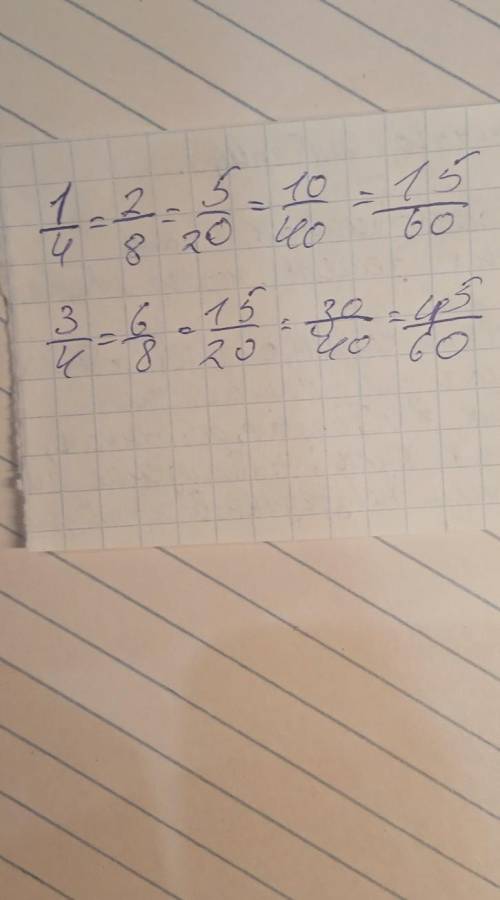 1/4 = 2/8 = 5/20 = 10/40 = 15/60
3/4 = 6/8 = 15/20 = 30/40 = 45/60